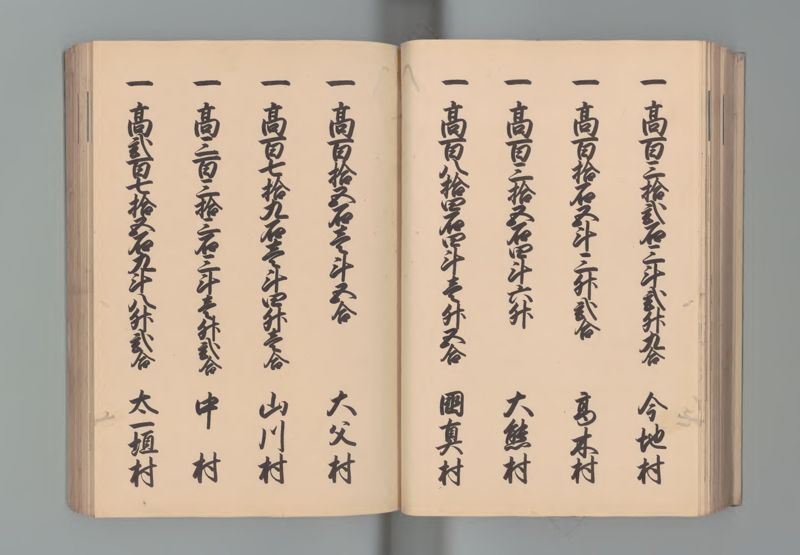 一高百三拾弐石三斗弐升九合 今地村
一高百拾石五斗三升弐合 高木村
一高百三拾五石四斗六升 大熊村
一高百八拾四石四斗壱升五合 國真村
一高百拾五石壱斗五合 大父村
一高百七拾九石壱斗四升壱合 山川村
一高三百三拾三石三斗壱升弐合 中村
一高弐百七拾五石九斗八升弐合 太一垣村